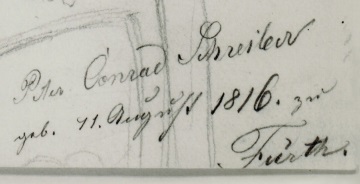 Pter Conrad Schreiber
geb. 11. August 1816. zu
Fürth.